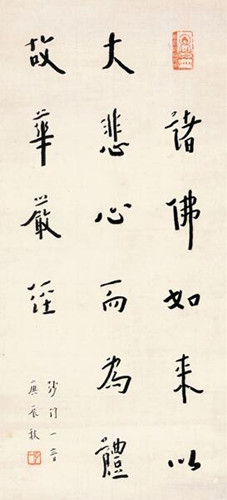 諸佛如來以
大悲心而為體
故華嚴經
沙門一音
庚辰秋